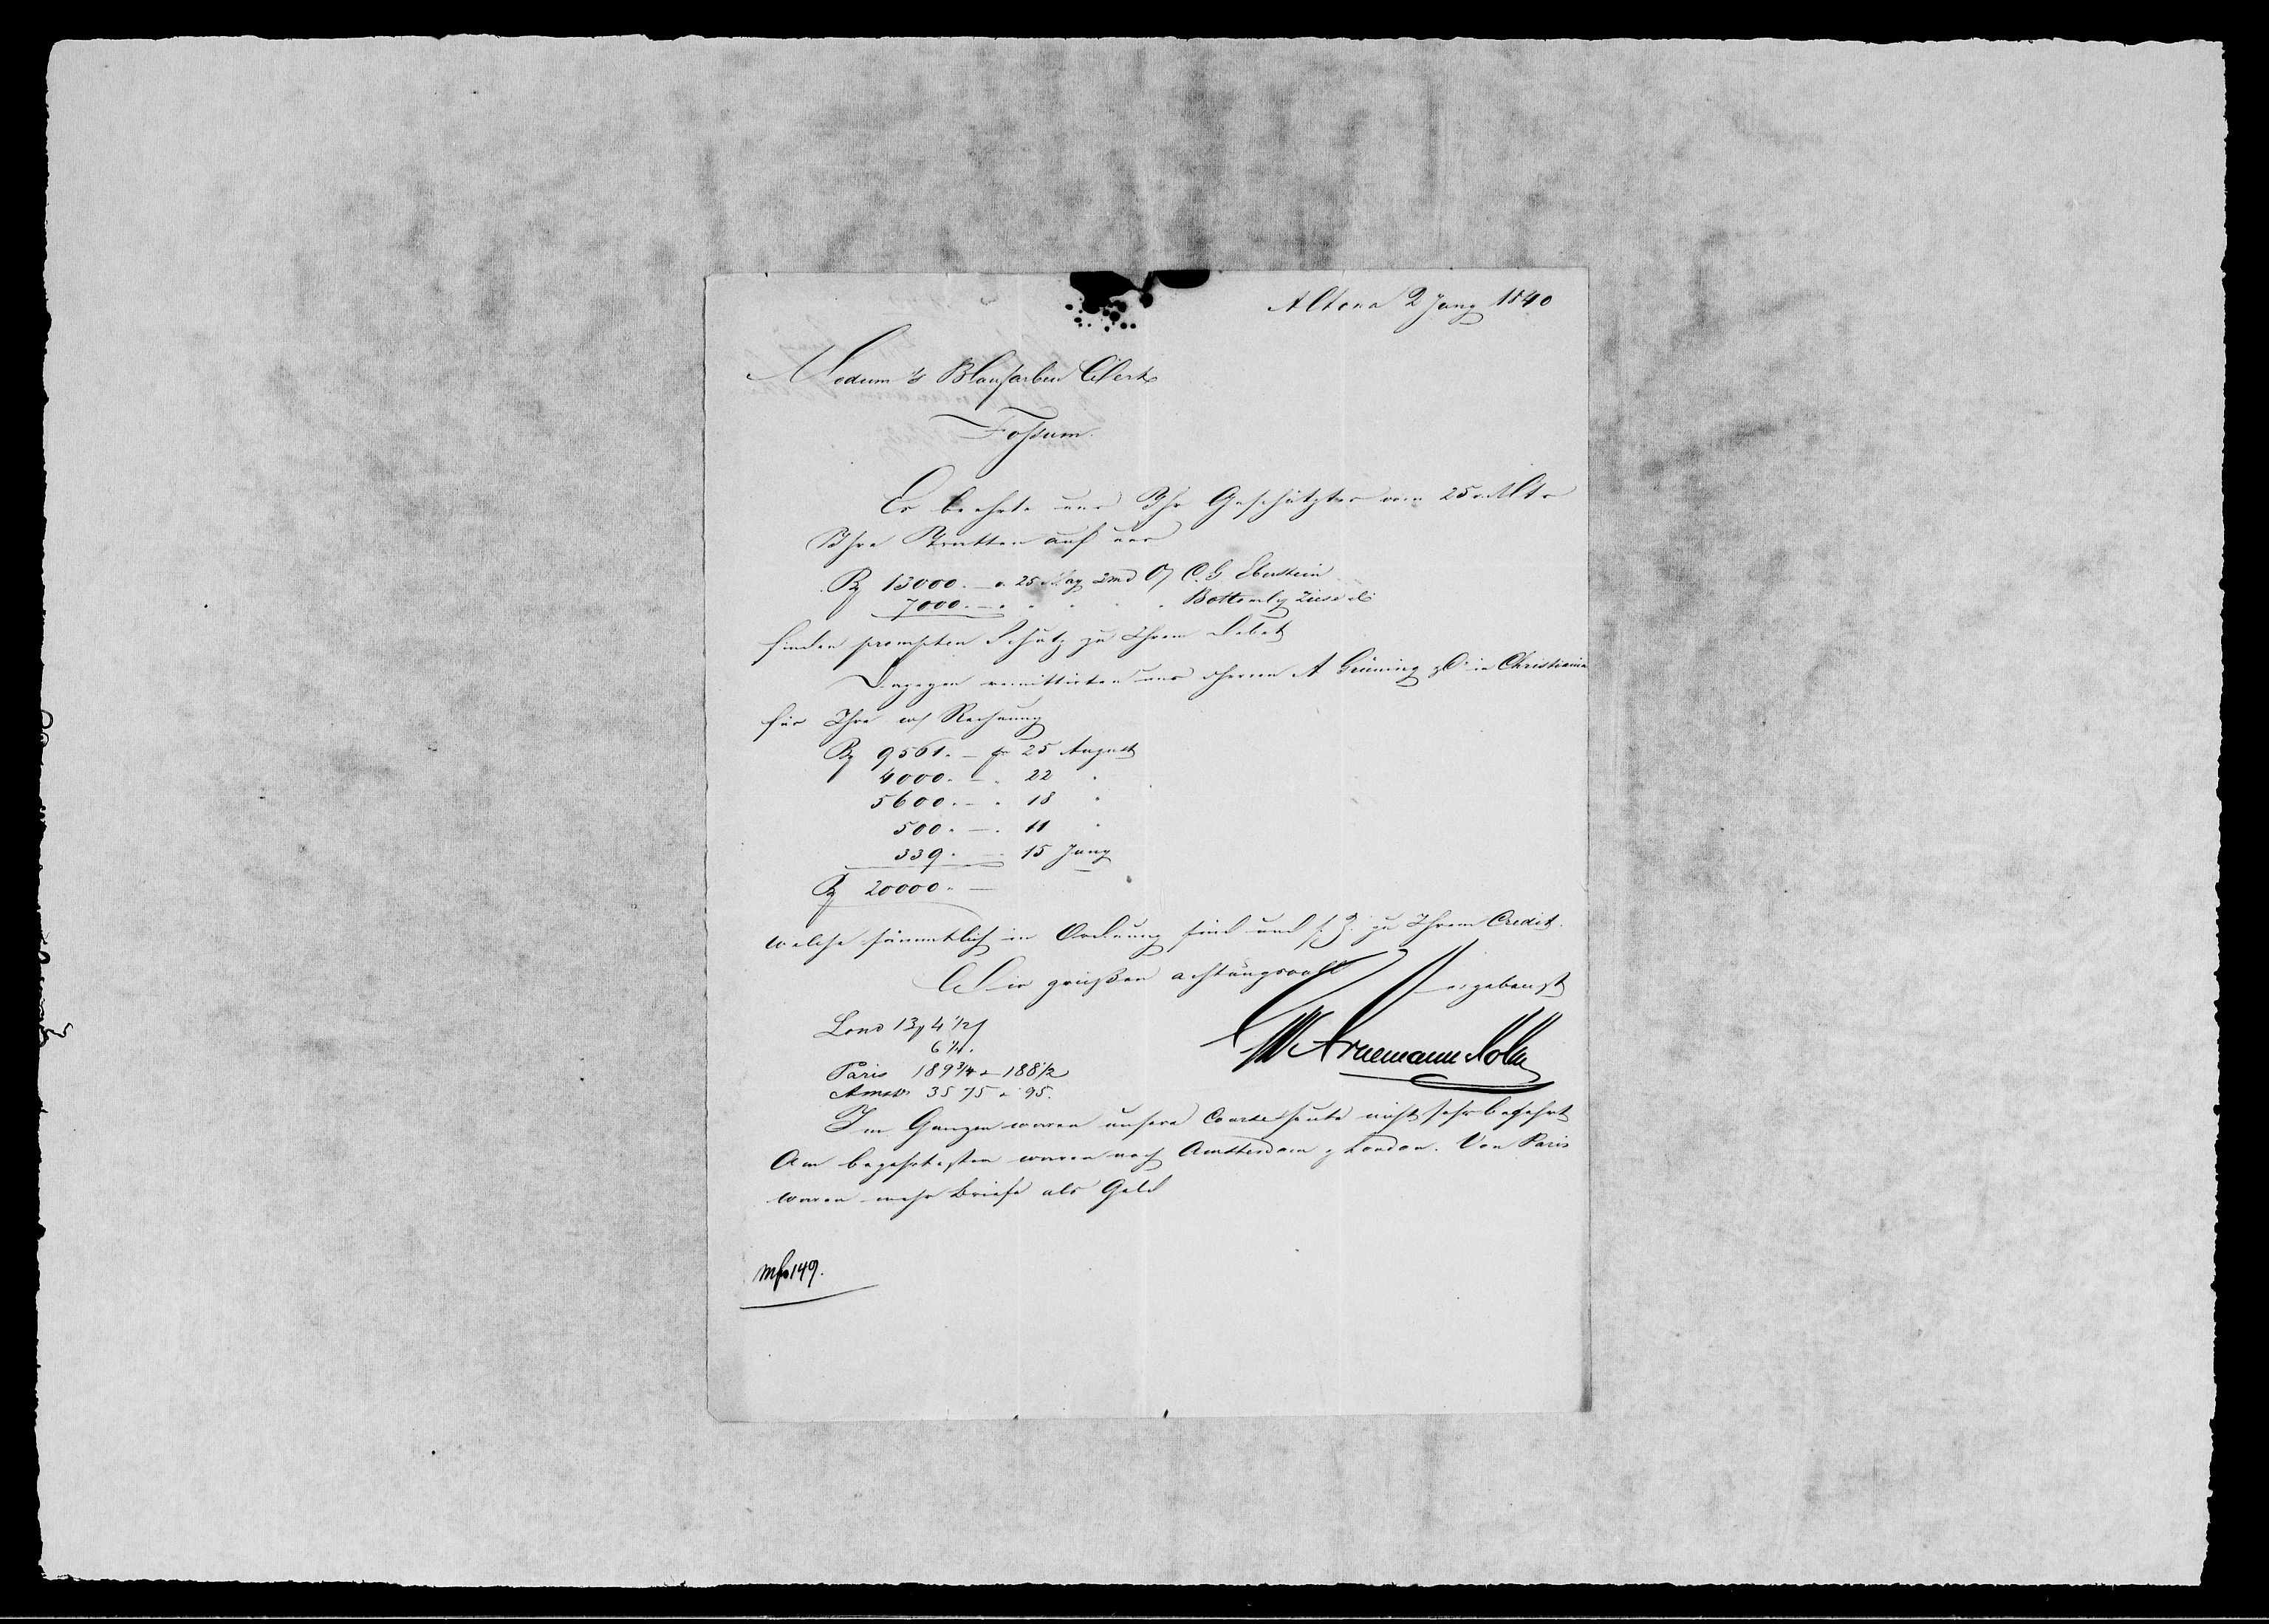 Altona 2 Juny 1840
Modum's Blaufarben Werk
Fossum.
Es beehrte uns Ihr Geschätztes vom 25 v. Mts
Ihre Tratten auf uns
B₰ 13000. – a. 25 May 2 md O/ C. G. Eberstein
7000. – " " " " " Bottomley Ziese &
finden prompten Schutz zu Ihrem Debet
Dagegen remittirten uns Herren A Grüning & Co in Christiania
für Ihre w/ Rechnung
B₰ 9561. – pr 25 August
4000. – " 22 "
5600. – " 18 "
500. – " 11 "
339. – " 15 Juny
B₰ 20000. –
welche sämmtlich in Ordnung sind und s. Z. zu Ihrem Credit.
Wir grüßen achtungsvoll
ergebenst
Lond 13 ₰ 4 1/2
6 1/4.
Arnemann Söhne
Paris 189 3/4 a 188 1/2
Amstr 35 75 a 95.
Im Ganzen waren unsere Course heute nicht sehr begehrt
Am begehrtesten waren noch Amsterdam & London. Von Paris
waren mehr Briefe als Geld
149.